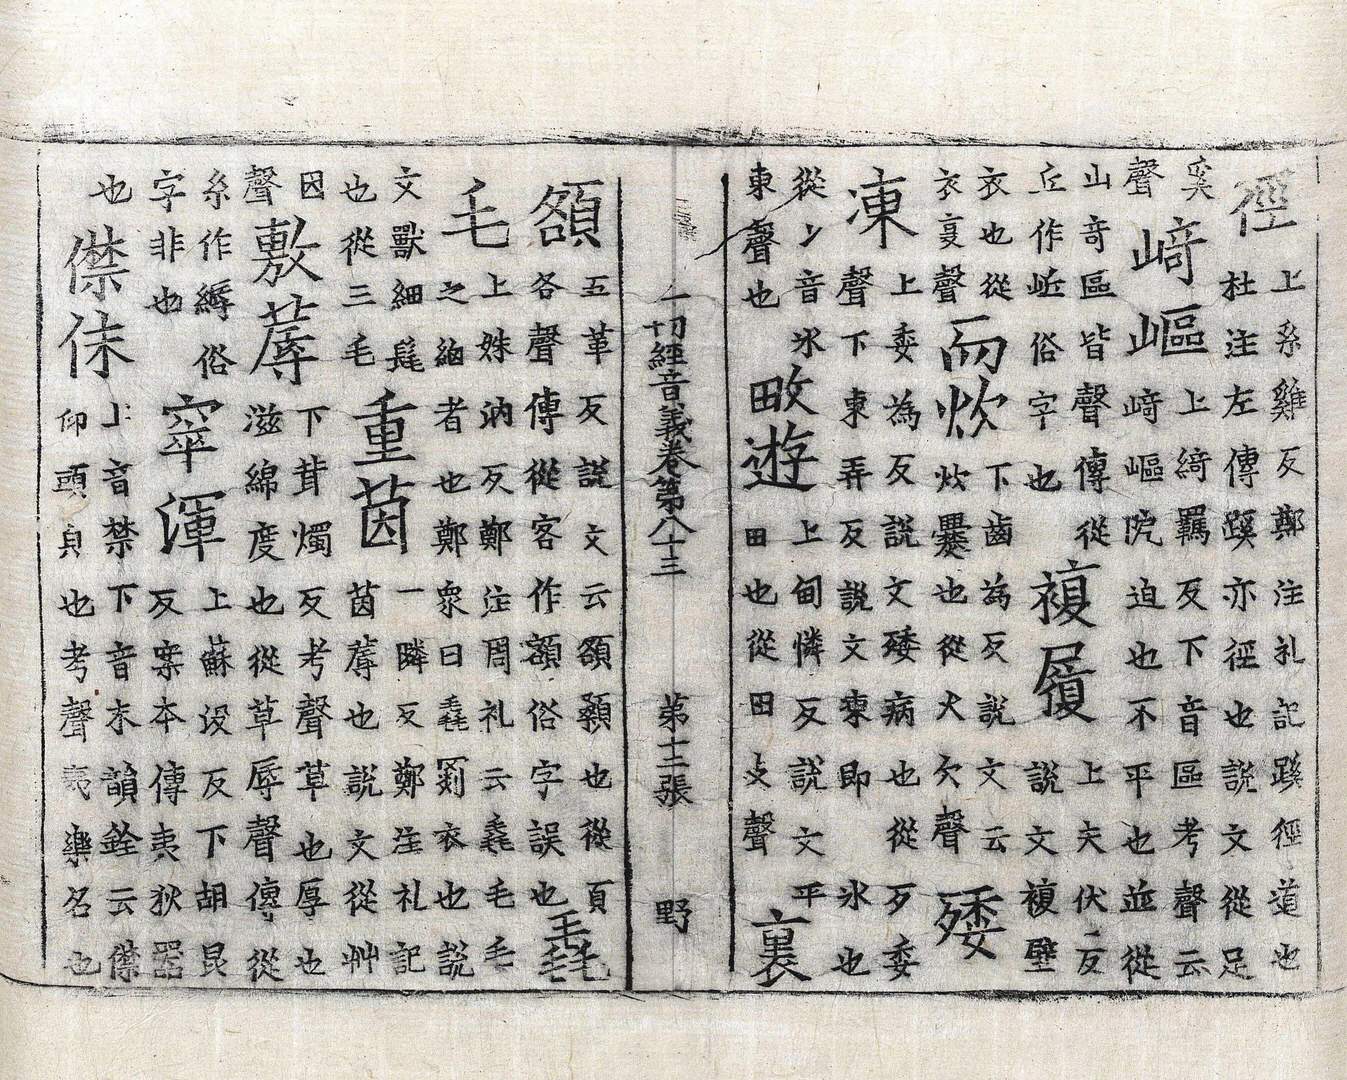 徑
上系雞反鄭注礼記蹊徑道也
杜注左傳蹊亦徑也説文從足
奚
聲
﨑嶇
上綺羈反下音區考聲云
﨑嶇阸迫也不平也並從
山奇區皆聲傳從
丘作岴俗字也
複履
上夫伏反
説文複壁
衣也從
衣复聲
而炊
下齒為反説文云
炊爨也從火欠聲
㱱
凍
上委為反説文㱱病也從歹委
聲下東弄反説文凍即氷也
從冫音氷
東聲也
畋遊
上甸憐反説文平
田也從田攵聲
裏
一切經音義卷第八十三 第十二張 野
頟
五革反説文云頟顙也從頁
各聲傳從客作額俗字誤也
毳
毛
上姝汭反鄭注周礼云毳毛毛
之細者也鄭衆曰毳罽衣也説
文獸細毳
也從三毛
重茵
一隣反鄭注礼記
茵蓐也説文從艸
因
聲
敷蓐
下茸燭反考聲草也厚也
滋綿度也從草辱聲傳從
糸作縟俗
字非也
窣渾
上蘇没反下胡昆
反案本傳夷狄噐
也
僸佅
上音禁下音末韻銓云僸
仰頭皃也考聲夷樂名也